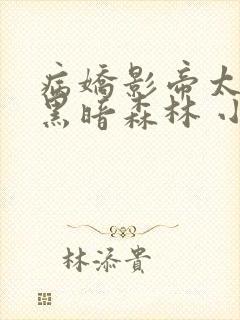 病嬌影帝太
黑暗森林 小
林添貴